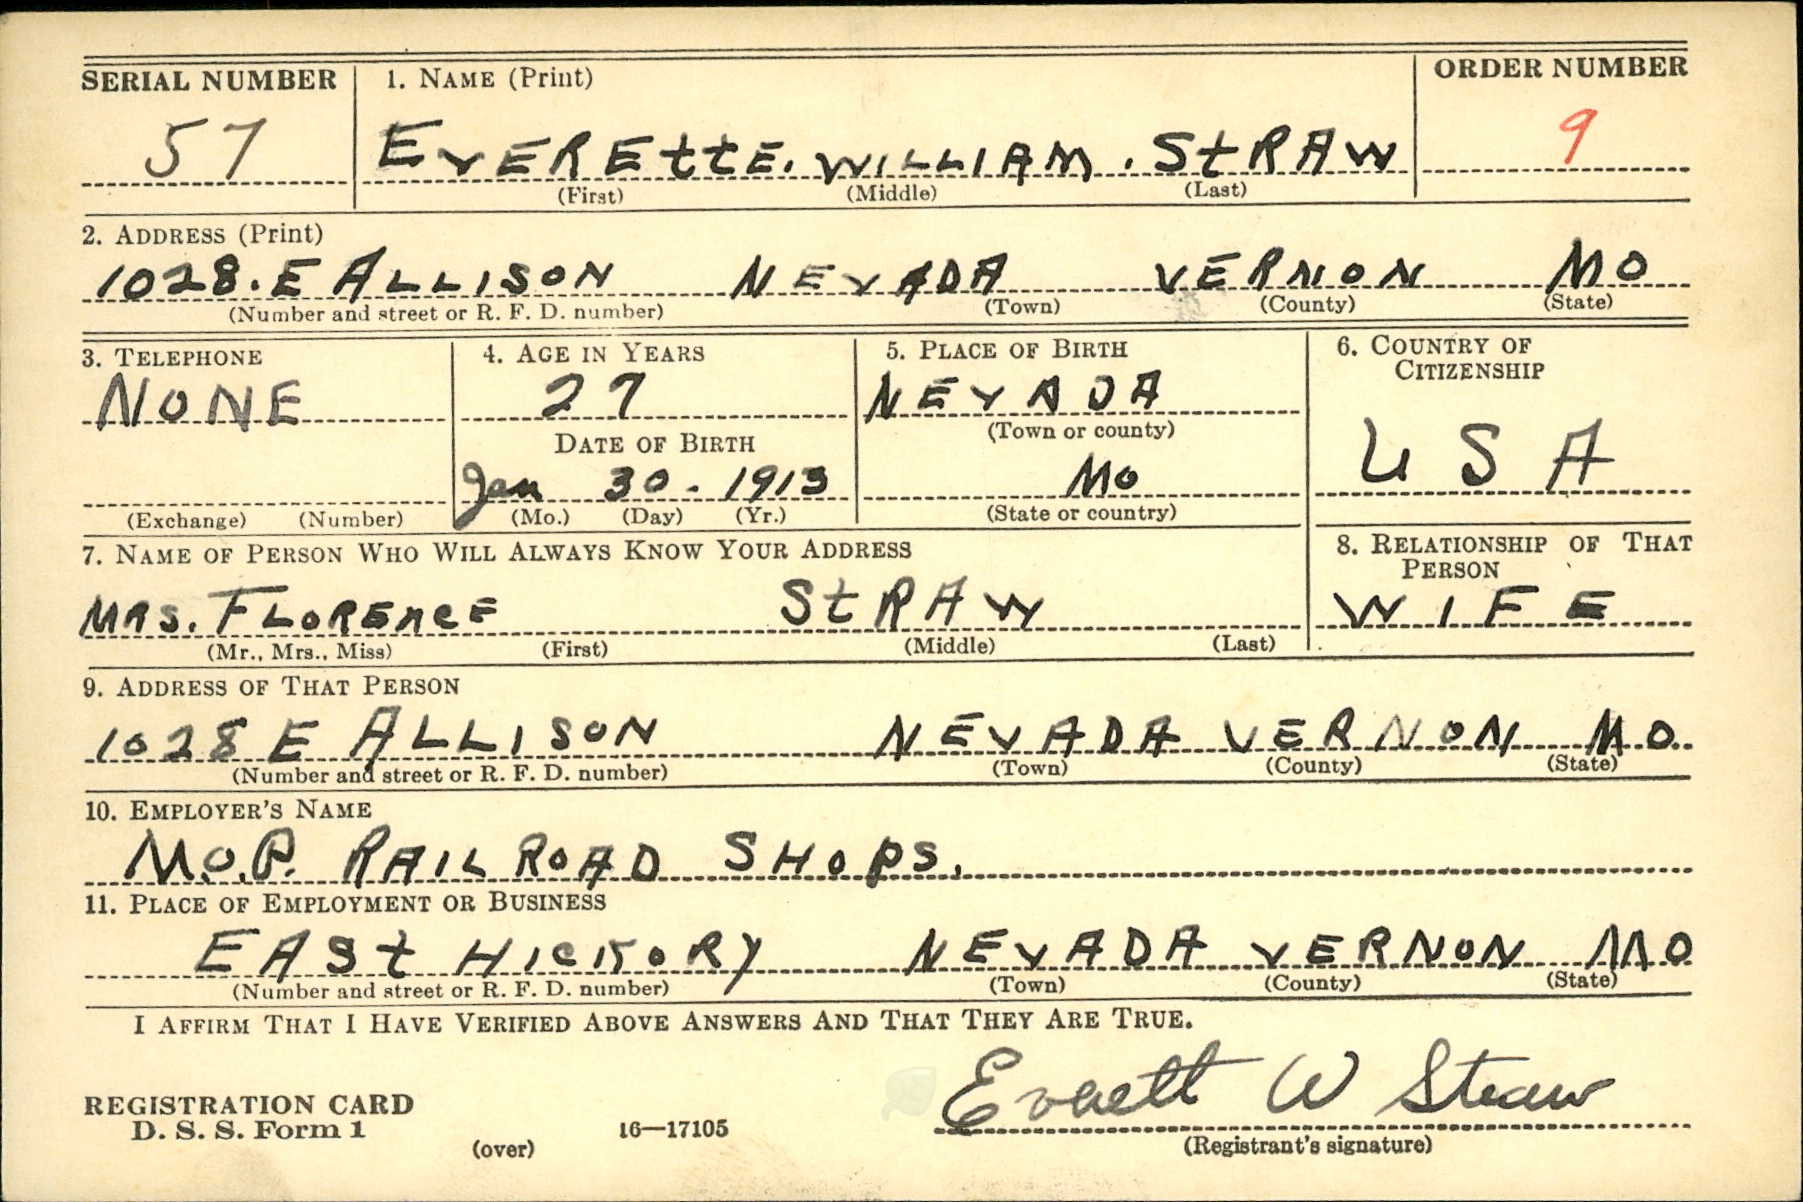 SERIAL NUMBER 1. NAME (Print) ORDER NUMBER
57 EVEREttE. WILLIAM. StRAW 9
(First) (Middle) (Last)
2. ADDRESS (Print)
1028. E ALLISON NEVADA VERNON MO
(Number and street or R. F. D. number) (Town) (County) (State)
3. TELEPHONE 4. AGE IN YEARS 5. PLACE OF BIRTH 6. COUNTRY OF CITIZENSHIP
NONE 27 NEVADA
(Town or county)
DATE OF BIRTH
USA
Jan 30. 1913 MO
(Exchange) (Number) (Mo.) (Day) (Yr.) (State or country)
7. NAME OF PERSON WHO WILL ALWAYS KNOW YOUR ADDRESS 8. RELATIONSHIP OF THAT PERSON
MRS. FLORENCE StRAW WIFE
(Mr., Mrs., Miss) (First) (Middle) (Last)
9. ADDRESS OF THAT PERSON
1028 E ALLISON NEVADA VERNON MO.
(Number and street or R. F. D. number) (Town) (County) (State)
10. EMPLOYER'S NAME
M.O.P. RAILROAD SHOPS.
11. PLACE OF EMPLOYMENT OR BUSINESS
EASt HICKORY NEVADA VERNON MO
(Number and street or R. F. D. number) (Town) (County) (State)
I AFFIRM THAT I HAVE VERIFIED ABOVE ANSWERS AND THAT THEY ARE TRUE.
Everett W Straw
REGISTRATION CARD
D. S. S. Form 1 (over) 16—17105 (Registrant's signature)